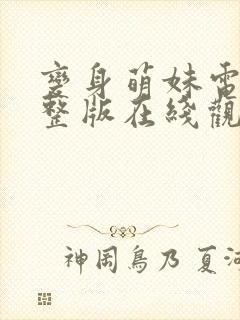 變身萌妹電
整版在綫觀
神岡鳥乃 夏河